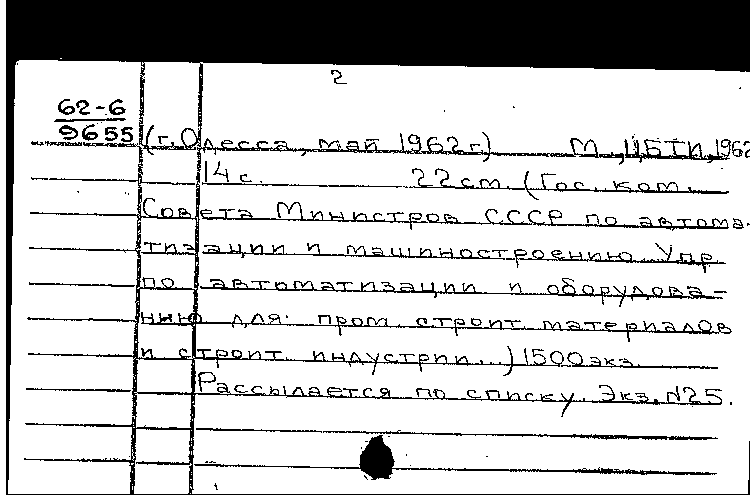 2
62-6
9655
(г. Одесса, май 1962 г.) М., ЦБТИ, 1962
14 с. 22 см. (Гос. ком.
Совета Министров СССР по автома-
тизации и машиностроению. Упр.
по автоматизации и оборудова-
нию для пром. строит. материалов
и строит. индустрии..) 1500 экз.
Рассылается по списку. Экз. №25.